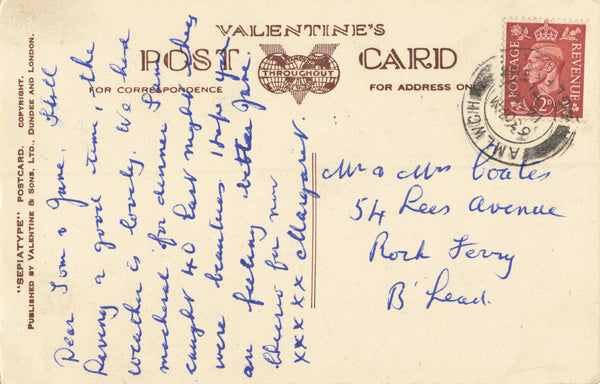 VALENTINE'S
POST CARD
THROUGHOUT
FOR CORRESPONDENCE
FOR ADDRESS ONLY
POSTAGE
REVENUE
2D
"SEPIATYPE" POSTCARD. COPYRIGHT.
PUBLISHED BY VALENTINE & SONS, LTD., DUNDEE AND LONDON.
Dear Tom & Jane, Still
having a good time, the
weather is lovely. We had
mackeral for dinner Tom
caught 40 last night they
were beauties I hope you
are feeling better Jane.
Cheerio for now
xxxxx Margaret.
Mr & Mrs Coates
54 Lees Avenue
Rock Ferry
B'head.